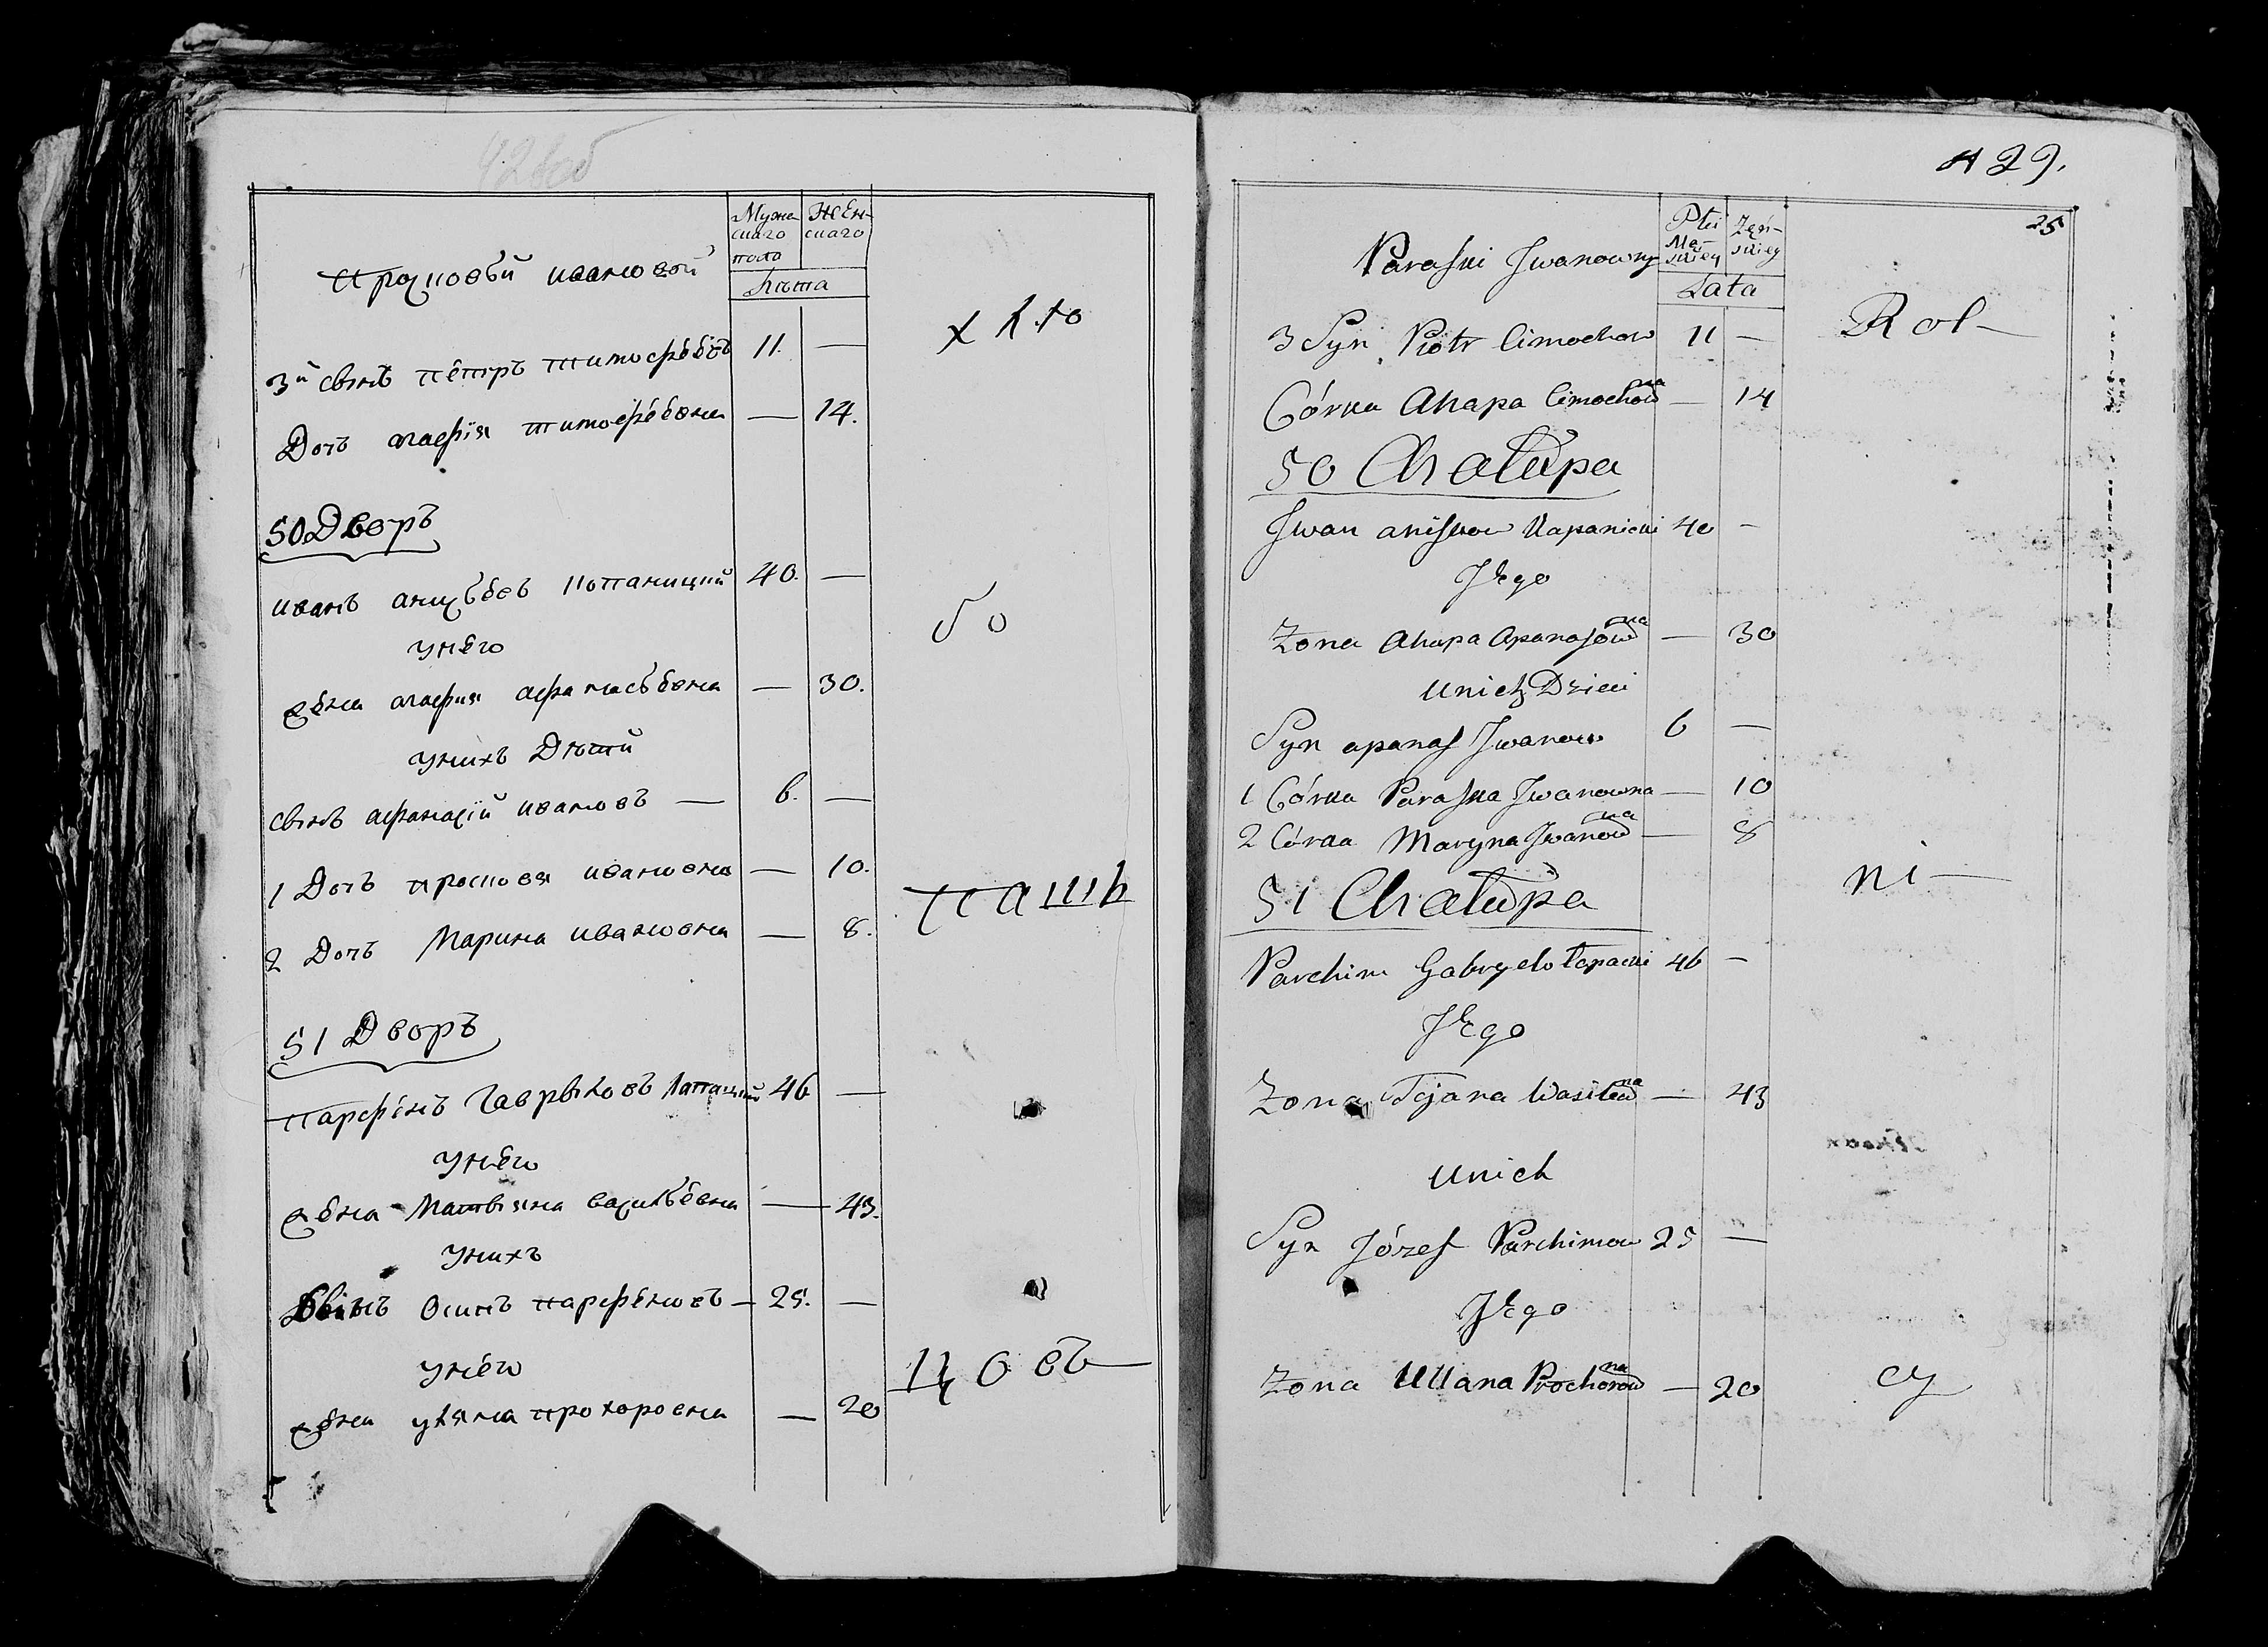 Мужескаго пола
Женскаго
Лѣта
Прасковьи ивановой
3й сынъ пётръ тимофѣевъ 11. —
Дочь агафія тимофѣевна — 14.
50 Дворъ
иванъ анисьевъ капаницкій 40. —
унего
жена агафия афанасьевна — 30.
унихъ Дѣтей
сынъ афанасій ивановъ — 6. —
1 Дочь прасковя ивановна — 10.
2 Дочь Марина ивановна — 8.
51 Дворъ
парфенъ Гаврыловъ лапацкий 46 —
унего
жена василъевна — 43.
унихъ
сынъ осипъ парфеновъ — 25. —
унего
жена уляна прохоровна — 20
хлѣ
бо
пашь
цовъ
29.
25
Płci Męskiey
Żęńskiey
Lata
Paraski Jwanowny
3 Syn Piotr Cimochow 11 —
Córka Ahapa Cimochowna — 14
50 Chałupa
Jwan aniskow Kapanicki 40 —
Jego
Zona Ahapa Apanasowna — 30
unich Dzieci
Syn apanas Jwanow 6 —
1 Córka Paraska Jwanowna — 10
2 Córka Maryna Jwanowna — 8
51 Chałupa
Parchim Gabryelo Łapacki 46 —
Jego
Zona Tejana Wasilewna — 43
unich
Syn Józef Parchimow 25 —
Jego
Zona Ullana Prochorowna — 20
Rol—
ni—
cy